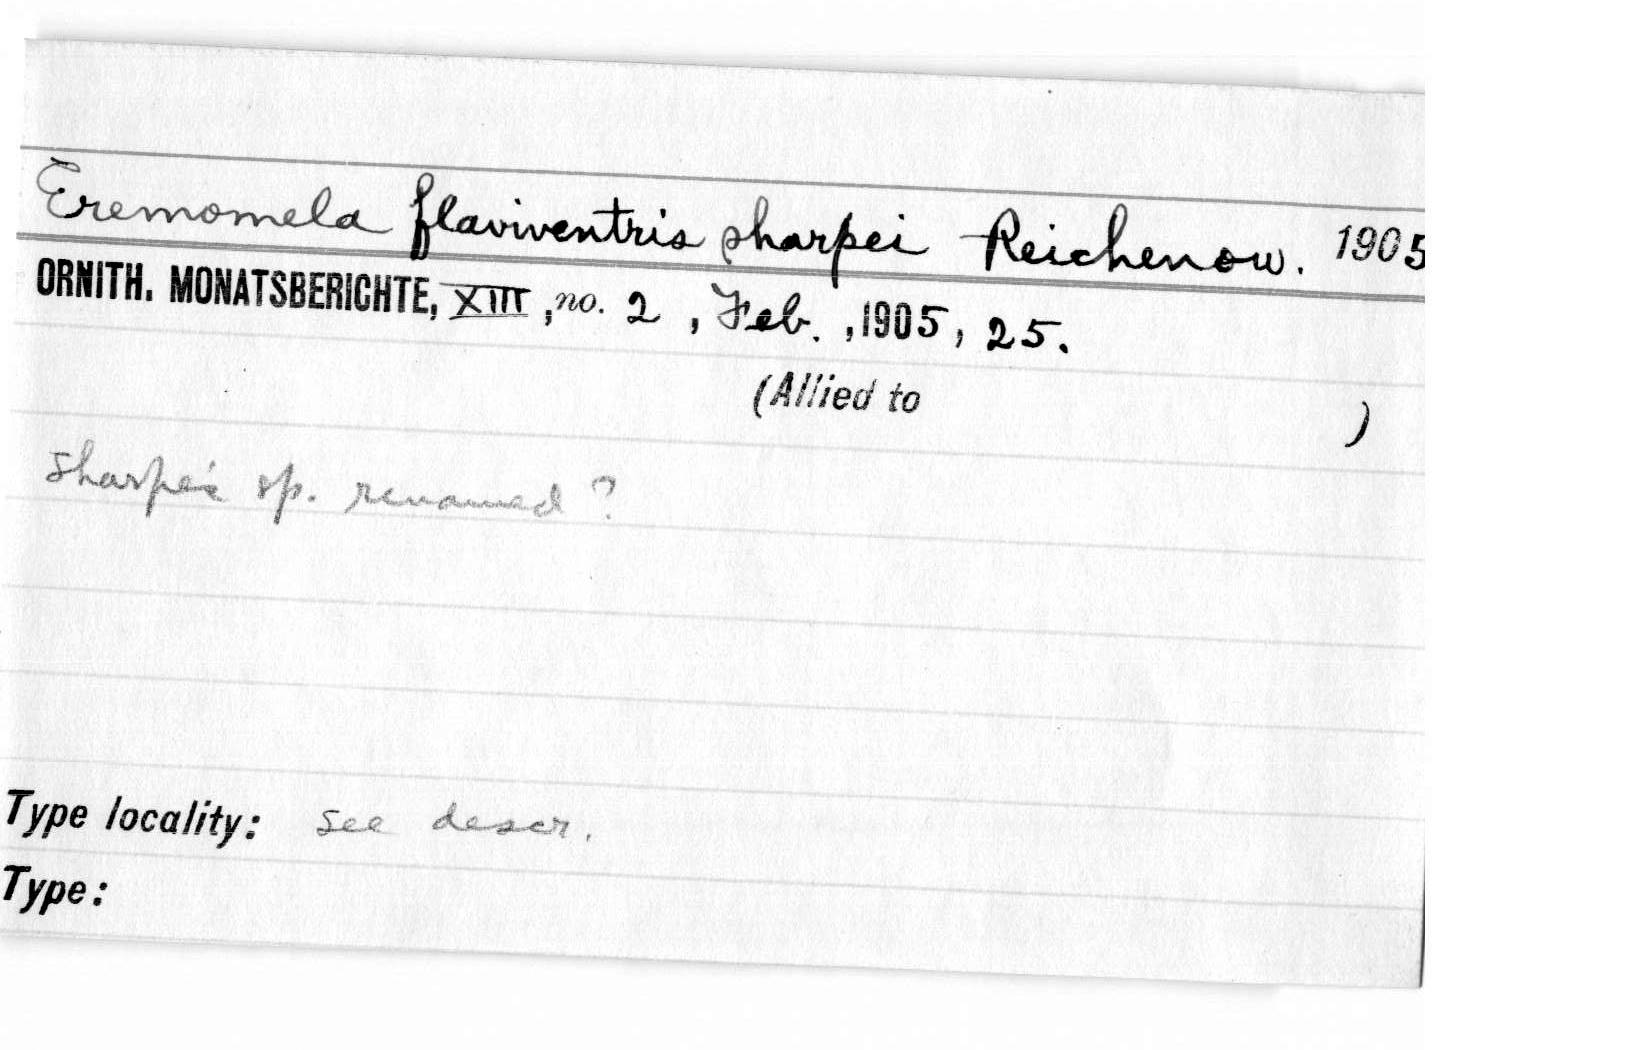 Eremomela flaviventris sharpei Reichenow. 1905
ORNITH. MONATSBERICHTE, XIII, no. 2, Feb., 1905, 25.
(Allied to )
Sharpe's sp. renamed?
Type locality: see descr.
Type: